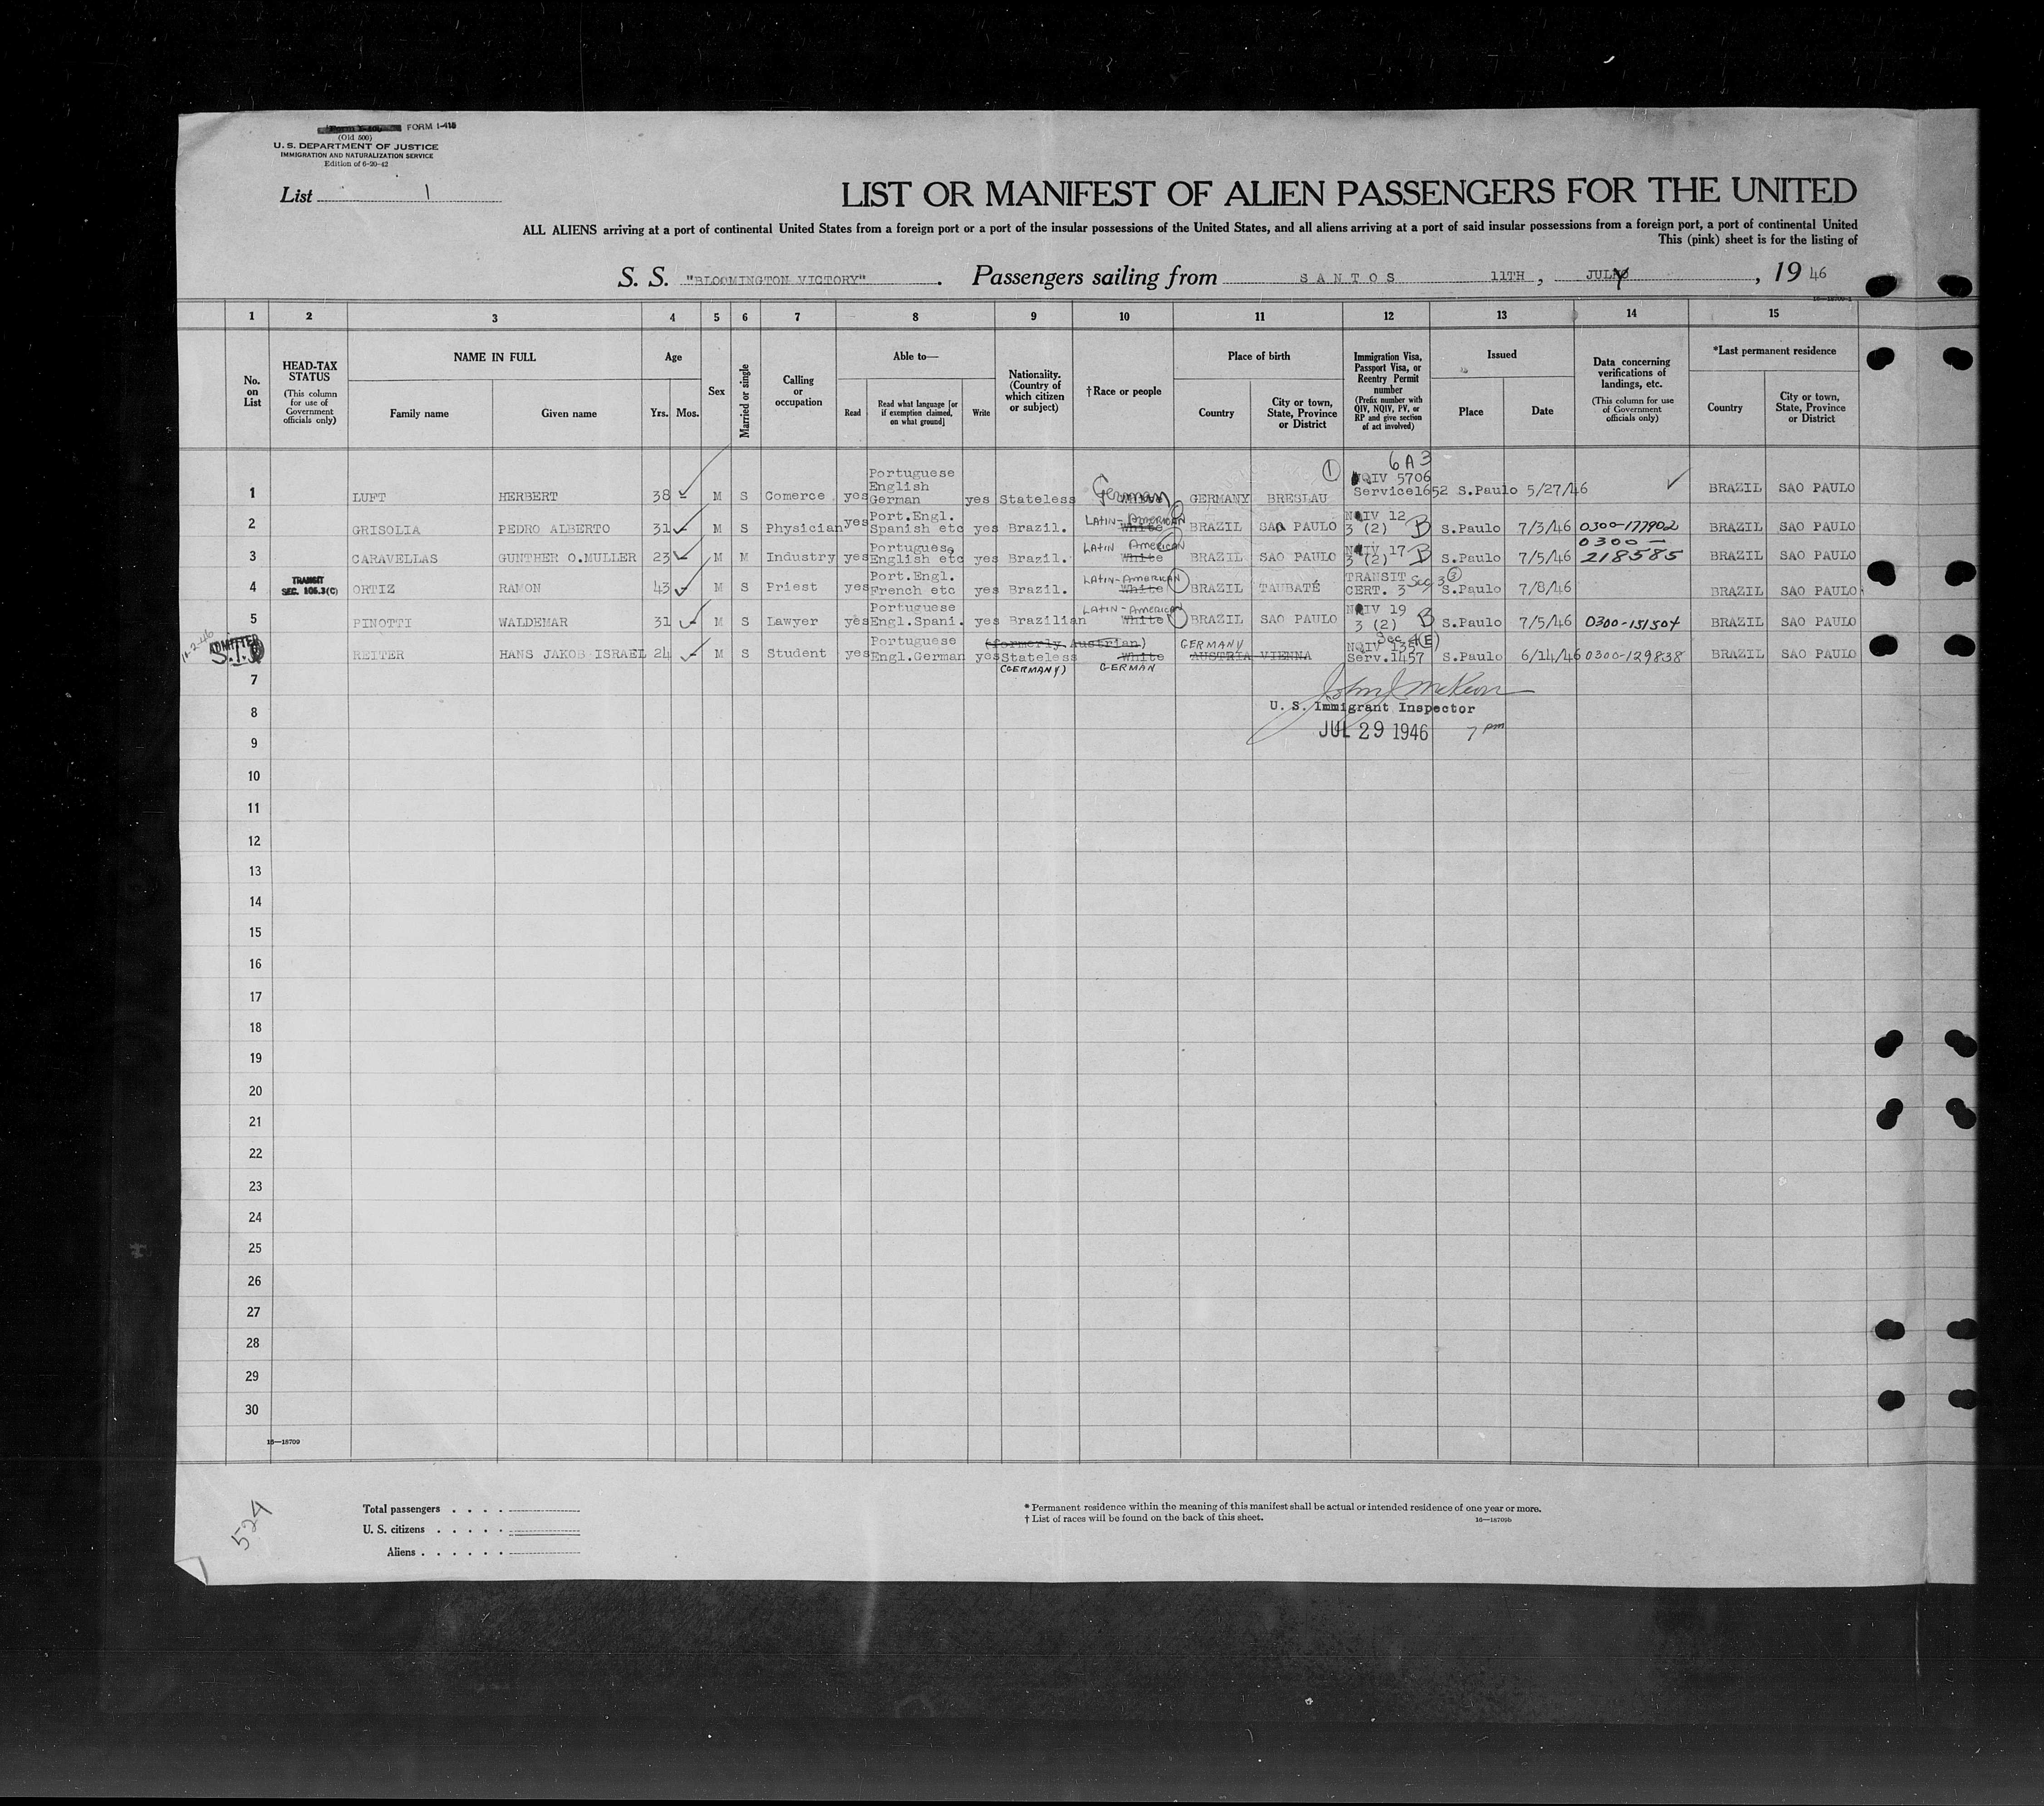 FORM I-415
(Old 500)
U. S. DEPARTMENT OF JUSTICE
IMMIGRATION AND NATURALIZATION SERVICE
Edition of 6-20-42
List 1
LIST OR MANIFEST OF ALIEN PASSENGERS FOR THE UNITED
ALL ALIENS arriving at a port of continental United States from a foreign port or a port of the insular possessions of the United States, and all aliens arriving at a port of said insular possessions from a foreign port, a port of continental United
This (pink) sheet is for the listing of
S. S. "BLOOMINGTON VICTORY". Passengers sailing from SANTOS 11TH, JULY, 19 46
1 2 3 4 5 6 7 8 9 10 11 12 13 14 15
No. on List
HEAD-TAX STATUS
(This column for use of Government officials only)
NAME IN FULL
Family name
Given name
Age
Yrs. Mos.
Sex
Married or single
Calling or occupation
Able to—
Read
Read what language [or if exemption claimed, on what ground]
Write
Nationality. (Country of which citizen or subject)
†Race or people
Place of birth
Country
City or town, State, Province or District
Immigration Visa, Passport Visa, or Reentry Permit number
(Prefix number with QIV, NQIV, PV, or RP and give section of act involved)
Issued
Place
Date
Data concerning verifications of landings, etc.
(This column for use of Government officials only)
*Last permanent residence
Country
City or town, State, Province or District
6A3
Portuguese 1 NQIV 5706
English
1 LUFT HERBERT 38 M S Comerce yes German yes Stateless German GERMANY BRESLAU Service1652 S.Paulo 5/27/46 BRAZIL SAO PAULO
Port.Engl. LATIN-AMERICAN NIV 12
2 GRISOLIA PEDRO ALBERTO 31 M S Physician yes Spanish etc yes Brazil. White BRAZIL SAO PAULO 3 (2) B S.Paulo 7/3/46 0300-177902 BRAZIL SAO PAULO
Portugues. LATIN American NIV 17 0300-
3 CARAVELLAS GUNTHER O.MULLER 23 M M Industry yes English etc yes Brazil. White BRAZIL SAO PAULO 3 (2) B S.Paulo 7/5/46 218585 BRAZIL SAO PAULO
TRANSIT Port.Engl. LATIN-AMERICAN TRANSIT Sec 3 (3)
4 SEC. 105.3(C) ORTIZ RAMON 43 M S Priest yes French etc yes Brazil. White BRAZIL TAUBATÉ CERT. 3 S.Paulo 7/8/46 BRAZIL SAO PAULO
Portuguese LATIN-American NIV 19
5 PINOTTI WALDEMAR 31 M S Lawyer yes Engl.Spani. yes Brazilian White BRAZIL SAO PAULO 3 (2) B S.Paulo 7/5/46 0300-151504 BRAZIL SAO PAULO
ADMITTED Portuguese (formerly Austrian) GERMANY Sec 4(E) NQIV 135
REITER HANS JAKOB ISRAEL 24 M S Student yes Engl.German yes Stateless White AUSTRIA VIENNA Serv.1457 S.Paulo 6/14/46 0300-129838 BRAZIL SAO PAULO
(GERMANY) GERMAN
7
John J McKeon
8 U. S. Immigrant Inspector
9 JUL 29 1946 7 pm
10
11
12
13
14
15
16
17
18
19
20
21
22
23
24
25
26
27
28
29
30
16—18709
524
Total passengers
U. S. citizens
Aliens
* Permanent residence within the meaning of this manifest shall be actual or intended residence of one year or more.
† List of races will be found on the back of this sheet.
16—18709b